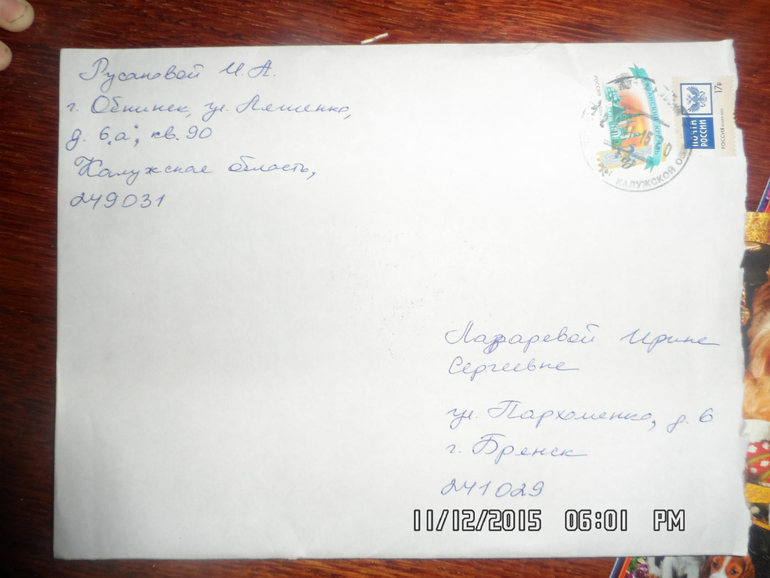 Русановой И.А.
г. Обнинск, ул. Ляшенко,
д. 6 „а", кв. 90
Калужская область,
249031
КАЛУЖСКОЙ
17р
ПОЧТА
РОССИИ
РОССИЯ
Лазаревой Ирине
Сергеевне
ул. Пархоменко, д. 6
г. Брянск
241029
11/12/2015 06:01 PM